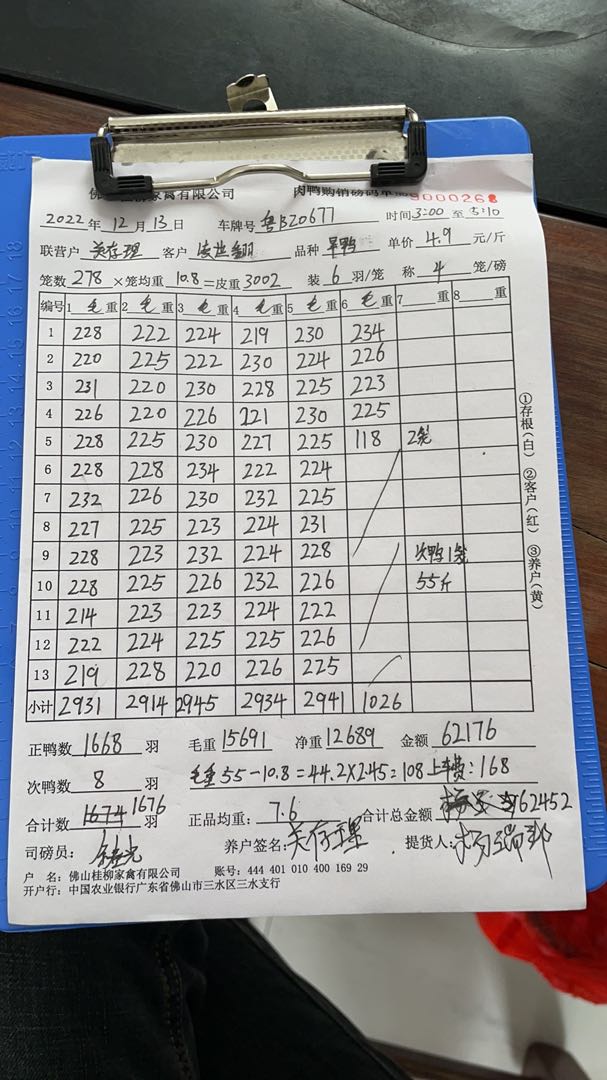 佛山桂柳家禽有限公司 肉鸭购销磅码单 9000268
2022年 12月 13日 车牌号 粤BZ0677 时间3:00 至 5:10
联营户 关存理 客户 品种 单价 4.9 元/斤
笼数 278 ×笼均重 10.8 =皮重 3002 装 6 羽/笼 称 4 笼/磅
编号 1 毛 重 2 毛 重 3 毛 重 4 毛 重 5 毛 重 6 毛 重 7 重 8 重
1 228 222 224 219 230 234
2 220 225 222 230 224 226
3 231 220 230 228 225 223
4 226 220 226 221 230 225
5 228 225 230 227 225 118 2笼
6 228 228 234 222 224
7 232 226 230 232 225
8 227 225 223 224 231
9 228 223 232 224 228 次鸭1笼
10 228 225 226 232 226 55斤
11 214 223 223 224 222
12 222 224 225 225 226
13 219 228 220 226 225
小计 2931 2914 2945 2934 2941 1026
①存根(白) ②客户(红) ③养户(黄)
正鸭数 1668 羽 毛重 15691 净重 12689 金额 62176
次鸭数 8 羽 毛重 55-10.8=44.2×2.45=108 上车费:168
合计数 1674 1676 羽 正品均重: 7.6 合计总金额 62452
司磅员: 养户签名: 关存理 提货人:
户 名: 佛山桂柳家禽有限公司 账号: 444 401 010 400 169 29
开户行: 中国农业银行广东省佛山市三水区三水支行